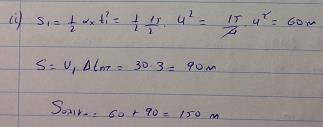 (i) S₁ = 1/2 αₓ t₁² = 1/2 15/2 · 4² = 15/4 · 4² = 60m
S = U₁ Δt = 30 · 3 = 90m
Sολικ. = 60 + 90 = 150 m